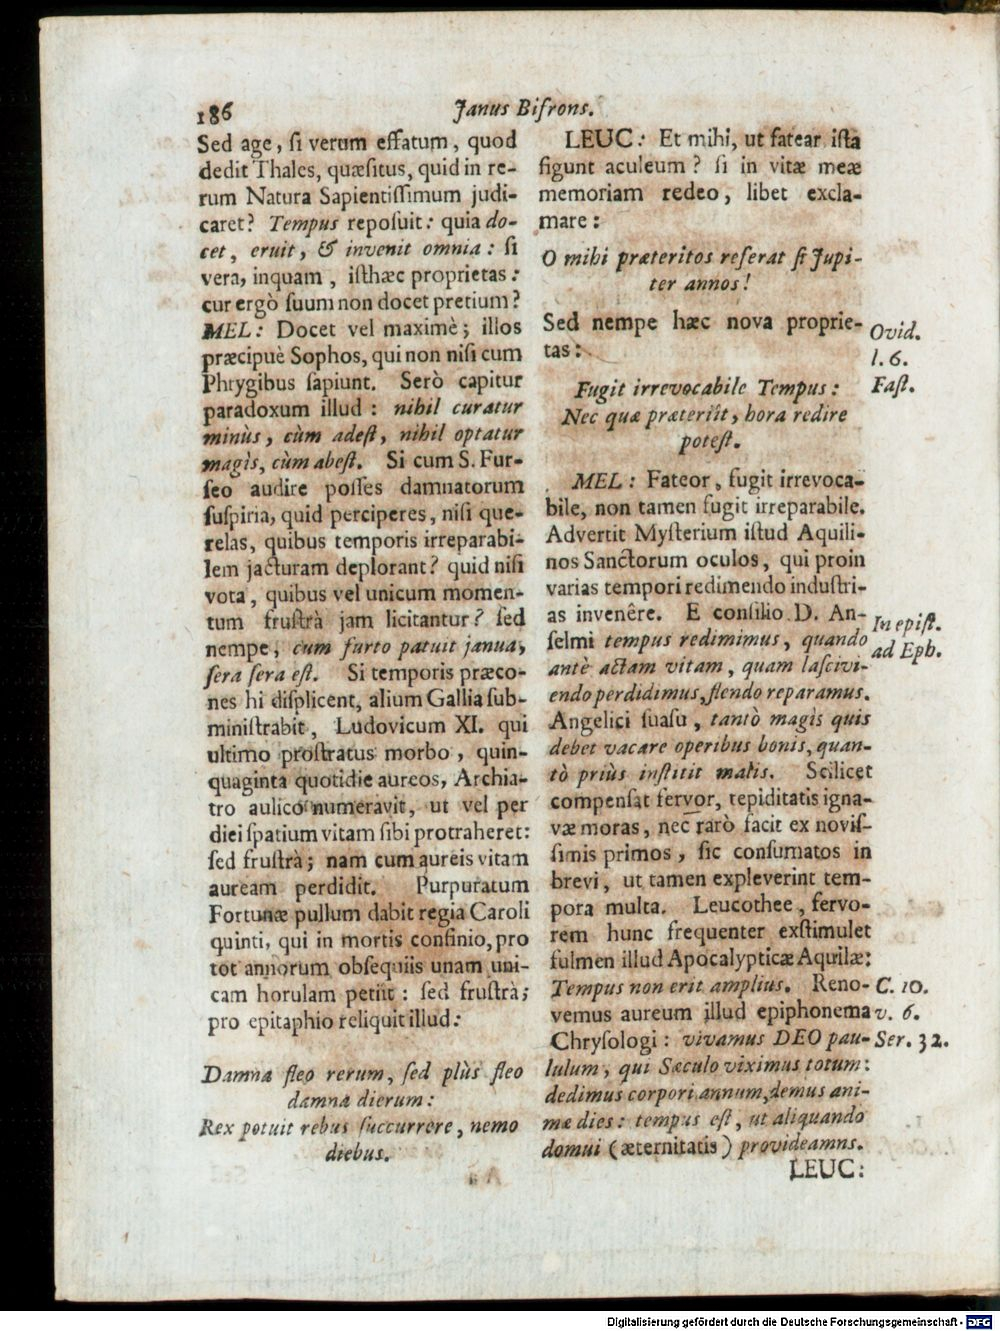 186
Janus Bifrons.
Sed age, ſi verum effatum, quod
dedit Thales, quæſitus, quid in re-
rum Natura Sapientiſſimum judi-
caret? Tempus repoſuit: quia do-
cet, eruit, & invenit omnia: ſi
vera, inquam, iſthæc proprietas:
cur ergò ſuum non docet pretium?
MEL: Docet vel maximè; illos
præcipuè Sophos, qui non niſi cum
Phrygibus ſapiunt. Serò capitur
paradoxum illud: nihil curatur
minùs, cùm adeſt, nihil optatur
magìs, cùm abeſt. Si cum S. Fur-
ſeo audire poſſes damnatorum
ſuſpiria, quid perciperes, niſi que-
relas, quibus temporis irreparabi-
lem jacturam deplorant? quid niſi
vota, quibus vel unicum momen-
tum fruſtrà jam licitantur? ſed
nempe, cum furto patuit janua,
ſera ſera eſt. Si temporis præco-
nes hi diſplicent, alium Gallia ſub-
miniſtrabit, Ludovicum XI. qui
ultimo proſtratus morbo, quin-
quaginta quotidie aureos, Archia-
tro aulico numeravit, ut vel per
diei ſpatium vitam ſibi protraheret:
ſed fruſtrà; nam cum aureis vitam
auream perdidit. Purpuratum
Fortunæ pullum dabit regia Caroli
quinti, qui in mortis confinio, pro
tot annorum obſequiis unam uni-
cam horulam petiit: ſed fruſtrà;
pro epitaphio reliquit illud:
Damna fleo rerum, ſed plùs fleo
damna dierum:
Rex potuit rebus ſuccurrere, nemo
diebus.
LEUC: Et mihi, ut fatear iſta
figunt aculeum? ſi in vitæ meæ
memoriam redeo, libet excla-
mare:
O mihi præteritos referat ſi Jupi-
ter annos!
Sed nempe hæc nova proprie-
tas:
Ovid.
l. 6.
Faſt.
Fugit irrevocabile Tempus:
Nec quæ præteriît, hora redire
poteſt.
MEL: Fateor, fugit irrevoca-
bile, non tamen fugit irreparabile.
Advertit Myſterium iſtud Aquili-
nos Sanctorum oculos, qui proin
varias tempori redimendo induſtri-
as invenêre. E conſilio D. An-
ſelmi tempus redimimus, quando
antè actam vitam, quam laſcivi-
endo perdidimus, flendo reparamus.
In epiſt.
ad Eph.
Angelici ſuaſu, tantò magìs quis
debet vacare operibus bonis, quan-
tò priùs inſtitit malis. Scilicet
compenſat fervor, tepiditatis igna-
væ moras, nec rarò facit ex noviſ-
ſimis primos, ſic conſumatos in
brevi, ut tamen expleverint tem-
pora multa. Leucothee, fervo-
rem hunc frequenter exſtimulet
fulmen illud Apocalypticæ Aquilæ:
Tempus non erit amplius. Reno-
vemus aureum illud epiphonema
Chryſologi: vivamus DEO pau-
lulum, qui Sæculo viximus totum:
dedimus corpori annum, demus ani-
mæ dies: tempus eſt, ut aliquando
domui (æternitatis) provideamns.
C. 10.
v. 6.
Ser. 32.
LEUC:
Digitalisierung gefördert durch die Deutsche Forschungsgemeinschaft - DFG